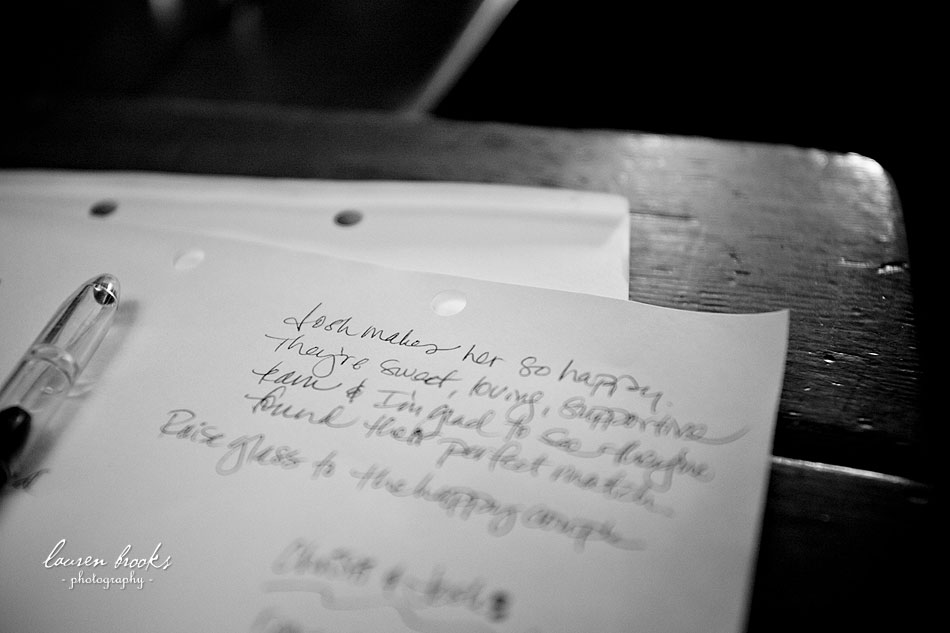 Josh makes her so happy.
They're sweet, loving, supportive
team & I'm glad to see they've
found their perfect match
Raise glass to the happy couple
& Josh
lauren brooks
- photography -